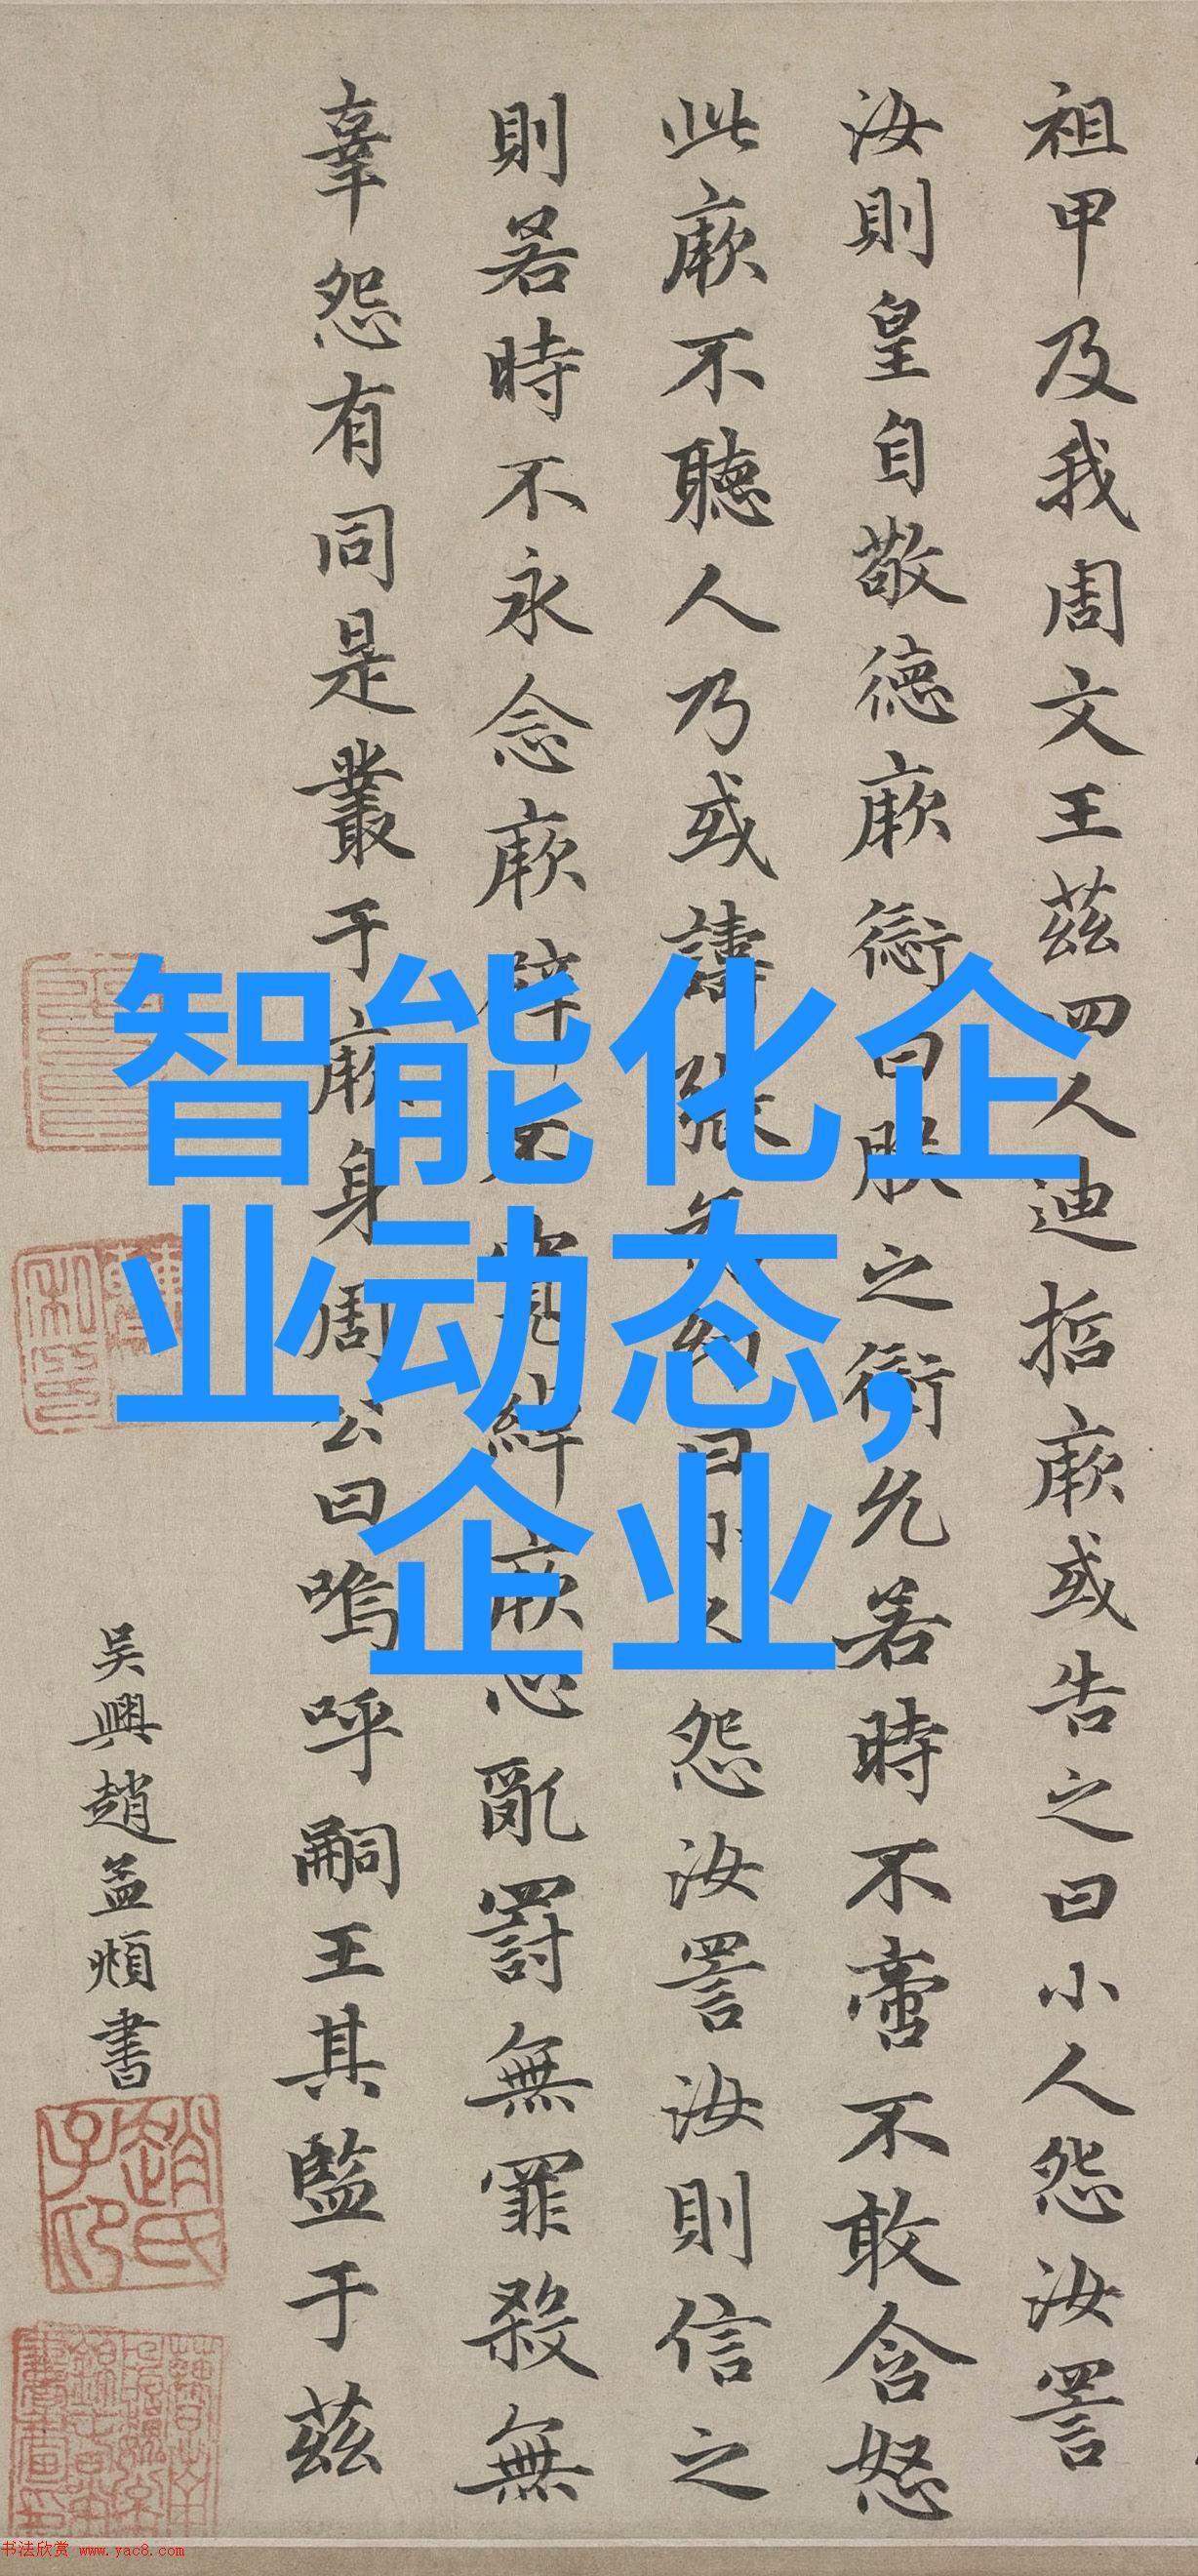 祖甲及我周文王茲四人迪哲厥或告之曰小人怨汝詈
汝則皇自敬德厥愆曰朕之愆允若時不啻不敢含怒
此厥不聽人乃或譸張為幻曰小人怨汝詈汝則信之
則若時不永念厥辟不寬綽厥心亂罰無罪殺無
辜怨有同是叢于厥身周公曰嗚呼嗣王其監于茲
吳興趙孟頫書
趙氏子印
智能化企
业动态,
企业
书法欣赏 www.yac8.com